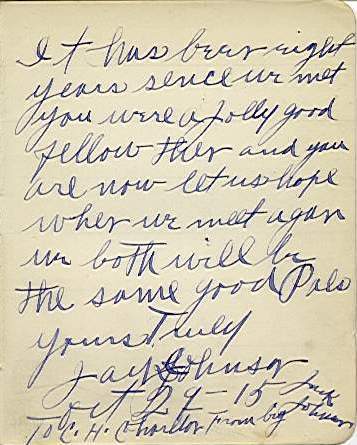 It has been eight
years sence we met
you were a Jolly good
fellow then and you
are now let us hope
when we meet agan
we both will be
the same good Pals
yours Truly
Jack Johnson
Oct 29-15
To C. H. Charlton From big Jack Johnson